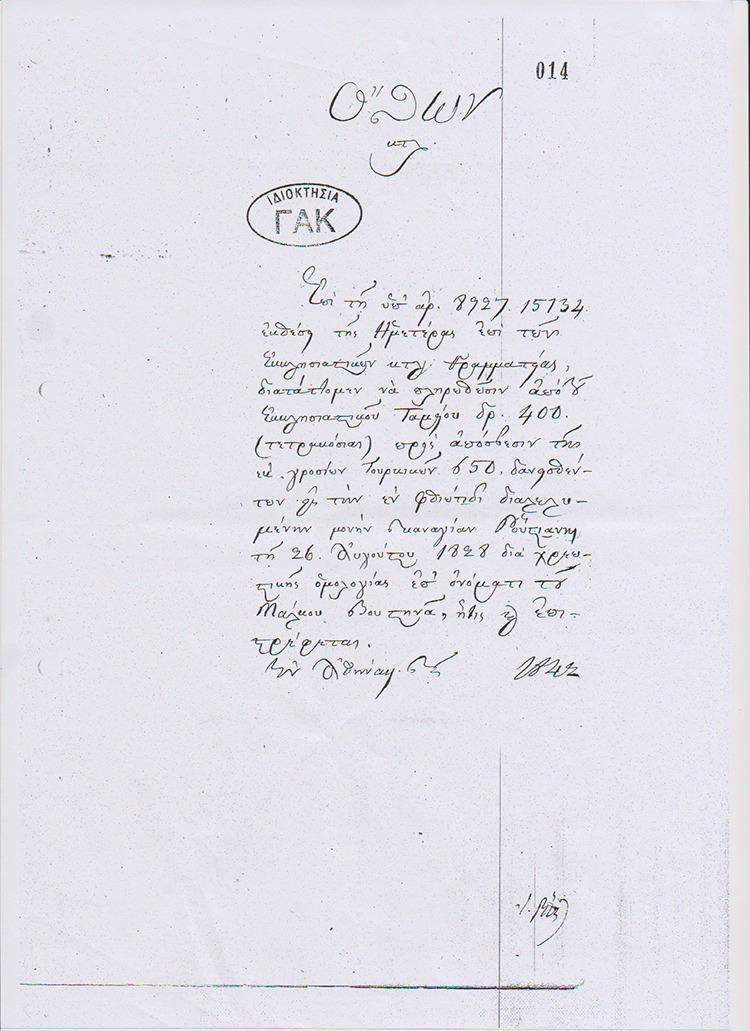 014
Ὄθων
κτλ
ΙΔΙΟΚΤΗΣΙΑ
ΓΑΚ
Ἐπὶ τῇ ὑπ' ἀρ. 8927. 15134.
ἐκθέσει τῆς Ἡμετέρας ἐπὶ τῶν
Ἐκκλησιαστικῶν κτλ. Γραμματείας,
διατάττομεν νὰ πληρωθῶσιν ἀπὸ τὸ
Ἐκκλησιαστικὸν Ταμεῖον δρ. 400.
(τετρακόσιαι) πρὸς ἀπόσβεσιν τῶν
ἐκ γροσίων Τουρκικῶν 650, δανεισθέν-
των εἰς τὴν ἐν Φθιώτιδι διαλελυ-
μένην μονὴν Παναγίαν
τῇ 26. Αὐγούστου 1828 διὰ χρεω-
στικῆς ὁμολογίας ἐπ' ὀνόματι τοῦ
Μάρκου, ἥτις ἐπι-
στρέφεται.
Ἐν Ἀθήναις τῇ 1842